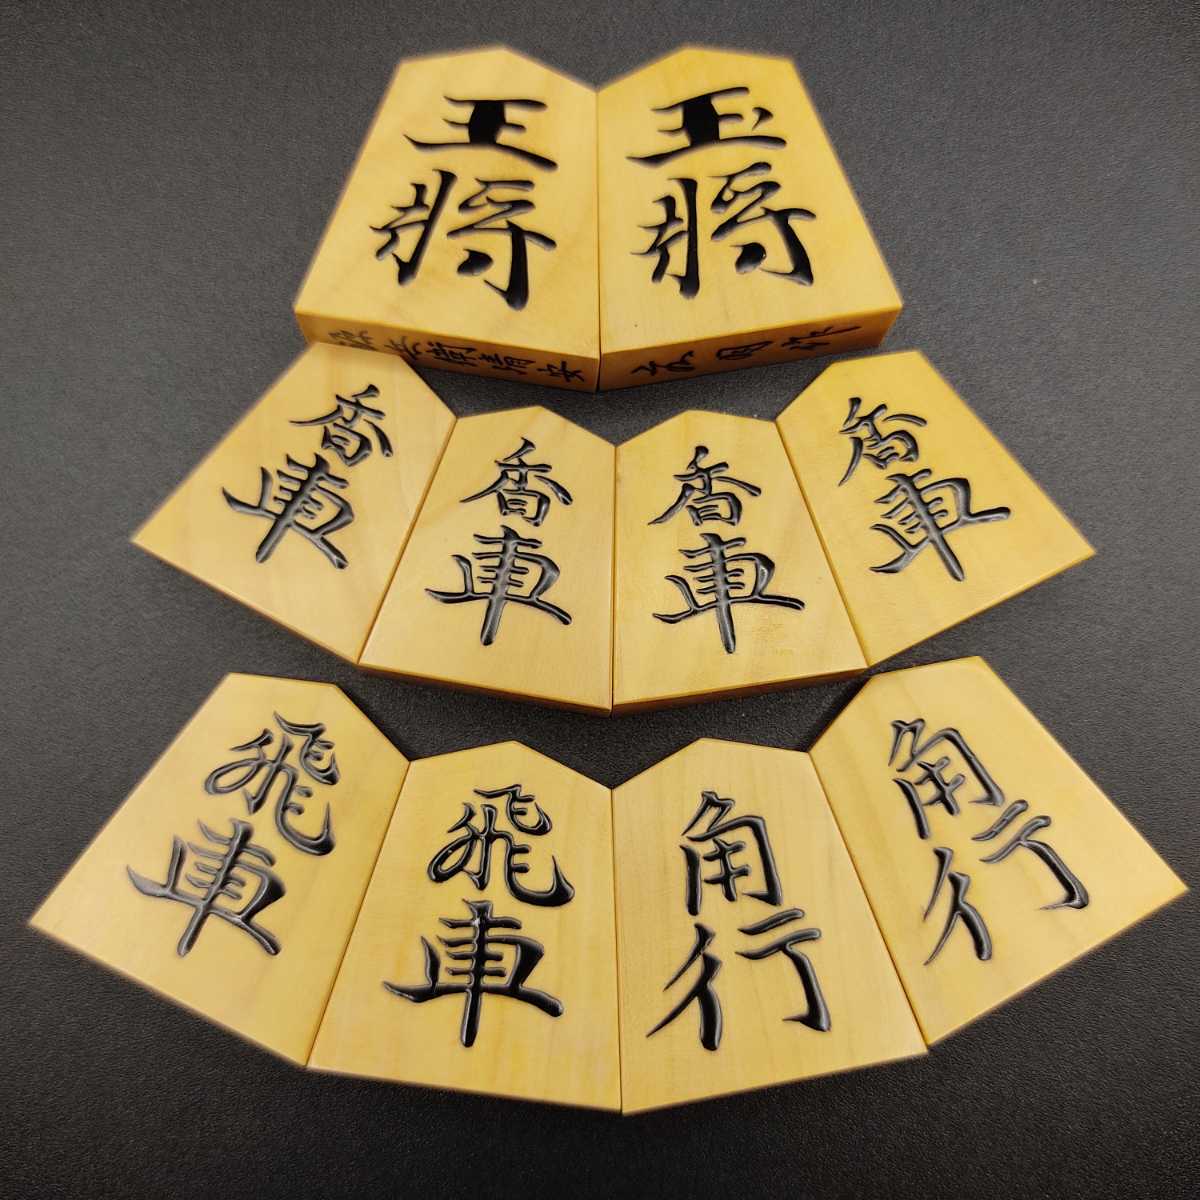 王将
玉将
香車
香車
香車
香車
飛車
飛車
角行
角行